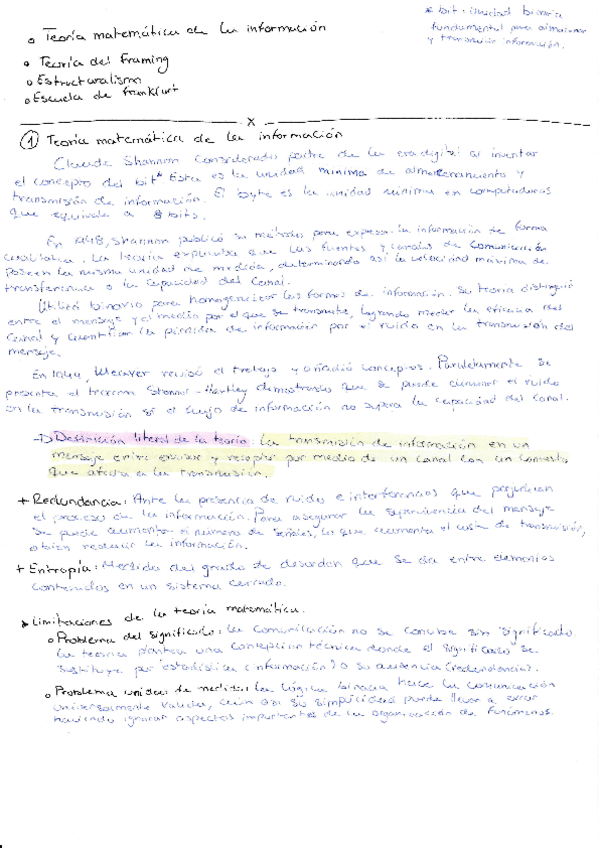 * bit: unidad binaria
fundamental para almacenar
y transmitir información.
o Teoría matemática de la información
o Teoría del framing
o Estructuralismo
o Escuela de Frankfurt
x
① Teoría matemática de la información
Claude Shannon considerado padre de la era digital al inventar
el concepto del bit* Esta es la unidad mínima de almacenamiento y
transmisión de información. El byte es la unidad mínima en computadoras
que equivale a 8 bits.
En 1948, Shannon publicó su método para expresar la información de forma
cuantitativa. La teoría explicaba que las fuentes y canales de comunicación
poseen la misma unidad de medida, determinando así la velocidad máxima de
transferencia o la capacidad del canal.
Utilizó binario para homogeneizar las formas de información. Su teoría distinguió
entre el mensaje y el medio por el que se transmite, logrando medir la eficacia del
canal y cuantificar la pérdida de información por el ruido en la transmisión del
mensaje.
En 1949, Weaver revisó el trabajo y añadió conceptos. Paralelamente se
presenta el teorema Shannon-Hartley demostrando que se puede eliminar el ruido
en la transmisión si el flujo de información no supera la capacidad del canal.
→ Definición literal de la teoría: La transmisión de información en un
mensaje entre emisor y receptor por medio de un canal con un contexto
que afecta a la transmisión.
+ Redundancia: Ante la presencia de ruidos e interferencias que perjudican
el proceso de la información. Para asegurar la supervivencia del mensaje
se puede aumentar el número de señales, lo que aumenta el coste de transmisión,
o bien reducir la información.
+ Entropía: Medida del grado de desorden que se da entre elementos
contenidos en un sistema cerrado.
➤ Limitaciones de la teoría matemática.
o Problema del significado: La comunicación no se concibe sin significado.
La teoría plantea una concepción técnica donde el significado se
sustituye por estadística (información) o su ausencia (redundancia).
o Problema unidad de medida: La lógica binaria hace la comunicación
universalmente válida, aún así su simplicidad puede llevar a error
haciendo ignorar aspectos importantes de la organización de fenómenos.